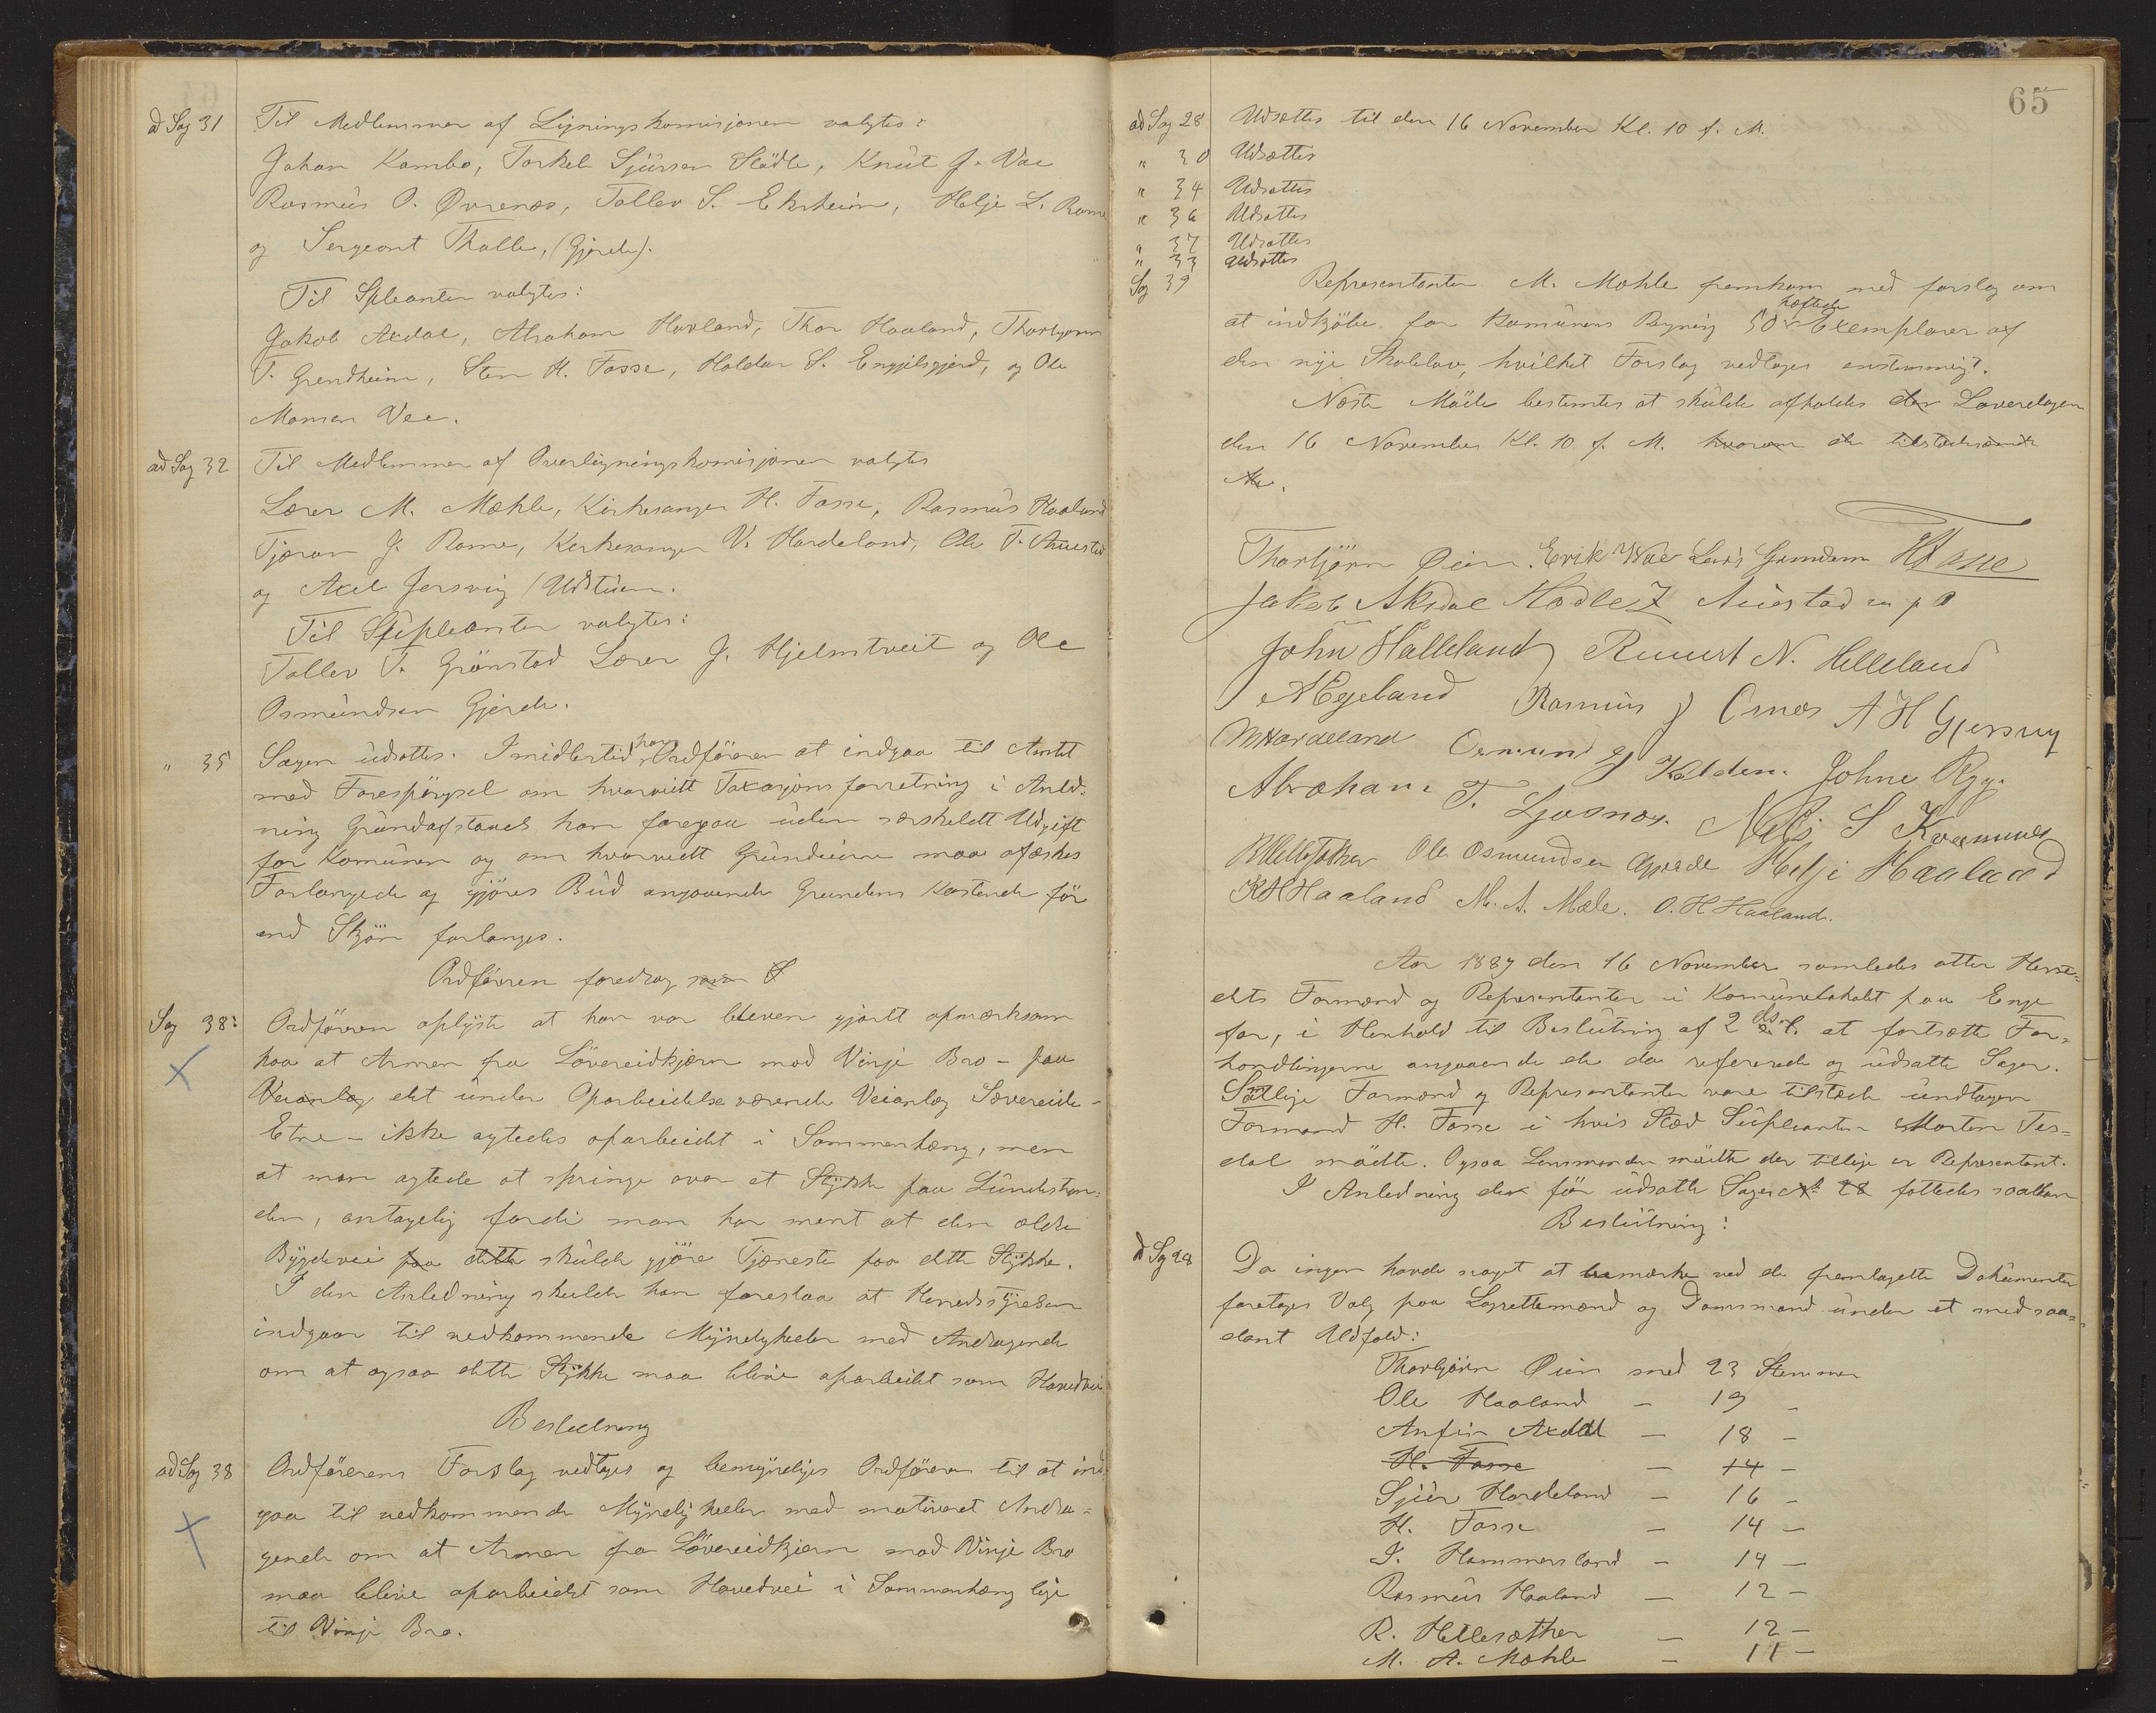 ad Sag 31 Til Medlemmer af Ligningskomisjonen valgtes:
Johan Kambo, Torkel Sjursen Stødle, Knut J. Vae
Rasmus O. Øvrenæs, Tollev S. Ekrheim, Helje L. Rame
og Sergeant Thalle, (Gjerde).
Til Spleanter valgtes:
Jakob Axdal, Abraham Havland, Thor Haaland, Thorbjørn
T. Grindheim, Sten H. Fosse, Haldor S. Engjelsgjerd, og Ole
Monsen Vee.
ad Sag 32 Til Medlemmer af Overligningskomisjonen valgtes
Lærer M. Mæhle, Kirkesanger H. Fosse, Rasmus Haaland
Tjæran J. Rame, Kirkesanger V. Hardeland, Ole T. Auestad
og Axel Jersvig (Udstuen.
Til Supleanter valgtes:
Tollev T. Grønstad Lærer J. Hjelmtveit og Ole
Osmundsen Gjerde.
" 35 Sagen udsattes. Imidlertid har Ordføreren at indgaa til Amtet
med Forespørgsel om hvorvidt Taxasjonsforretning i Anled-
ning Grundafstaaels kan foregaa uden særskeldt Udgift
for Komunen og om hvorvidt Grundeierne maa afæskes
Forlangede og gjøres Bud angaaende Grundens Kostende før
end Skjøn forlanges.
Ordføreren foredrog som S
Sag 38: Ordføreren oplyste at han var bleven gjordt opmærksom
paa at Armen fra Løvereidkjærn mod Vinje Bro - paa
Veianlæg det under Oparbeidelse værende Veianlæg Sævereide-
Etne - ikke agtedes oparbeidet i Sammenhæng, men
at man agtede at springe over et Stykke paa Lundestran-
den, antagelig fordi man har ment at den ældre
Bygdevei paa dette skulde gjøre Tjæneste paa dette Stykke.
I den Anledning skulde han foreslaa at Herredsstyrelsen
indgaar til vedkommende Myndigheder med Andragende
om at ogsaa dette Stykke maa blive oparbeidet som Hovedvei
Beslutning
ad Sag 38 Ordførerens Forslag vedtages og bemyndiges Ordføreren til at ind-
gaa til vedkommende Myndigheder med motiveret Andra-
gende om at Armen fra Løvereidkjærn mod Vinje Bro
maa blive oparbeidet som Hovedvei i Sammenhæng lige
til Vinje Bro.
65
ad Sag 28 Udsættes til den 16 November Kl. 10 f. M.
" 30 Udsættes
" 34 Udsattes
" 36 Udsattes
" 37 Udsattes
" 33 Udsattes
Sag 39 Representanten M. Mæhle fremkom med forslag om
at indkjøbe for Komunens Regning 50 hæftede Exemplarer af
den nye Skolelov, hvilket Forslag vedtages enstemmigt.
Næste Møde bestemtes at skulde afholdes den Løverdagen
den 16 November Kl. 10 f. M. hvorom de tilstedeværende
Thorbjörn Øien. Erik Wae Lars Grindem HFosse
Jakob Aksdal Hodle T Auestad m p
John Halleland Knut N. Helleland
A Egeland Rasmus J Osnes A H Gjersvig
M Hardeland Osmund Kalden. Johne Rygg
Abraham T. Ljosnes. Nils S Kvamme
R Hellesæther Ole Osmundsen Gjerde Helje Haaland
R H Haaland M. A. Mæle. O. H Haaland.
Aar 1889 den 16 November samledes atter Herre-
dets Formænd og Representanter i Komunelokalet paa Enge
for, i Henhold til Beslutning af 2 ds. at fortsætte For-
handlingerne angaaende de da refererede og udsatte Sager.
Samtlige Formænd og Representanter vare tilstæde undtagen
Formand H. Fosse i hvis Sted Supleanten Morten Tes-
dal mødte. Ogsaa Lensmanden mødte der tillige er Representant.
I Anledning de før udsatte Sager No 28 fattedes saadan
Beslutning:
ad Sag 28 Da ingen havde noget at bemærke ved de fremlagte Dokumenter
foretoges Valg paa Lagrettemænd og Domsmænd under et med saa-
dant Udfald:
Thorbjörn Øien med 23 Stemmer
Ole Haaland - 19 -
Anfin Axdal - 18 -
H. Fosse - 14 -
Sjur Hardeland - 16 -
H. Fosse - 14 -
I. Hammersland - 14 -
Rasmus Haaland - 12 -
R. Hellesæther - 12 -
M. A. Mæhle - 11 -